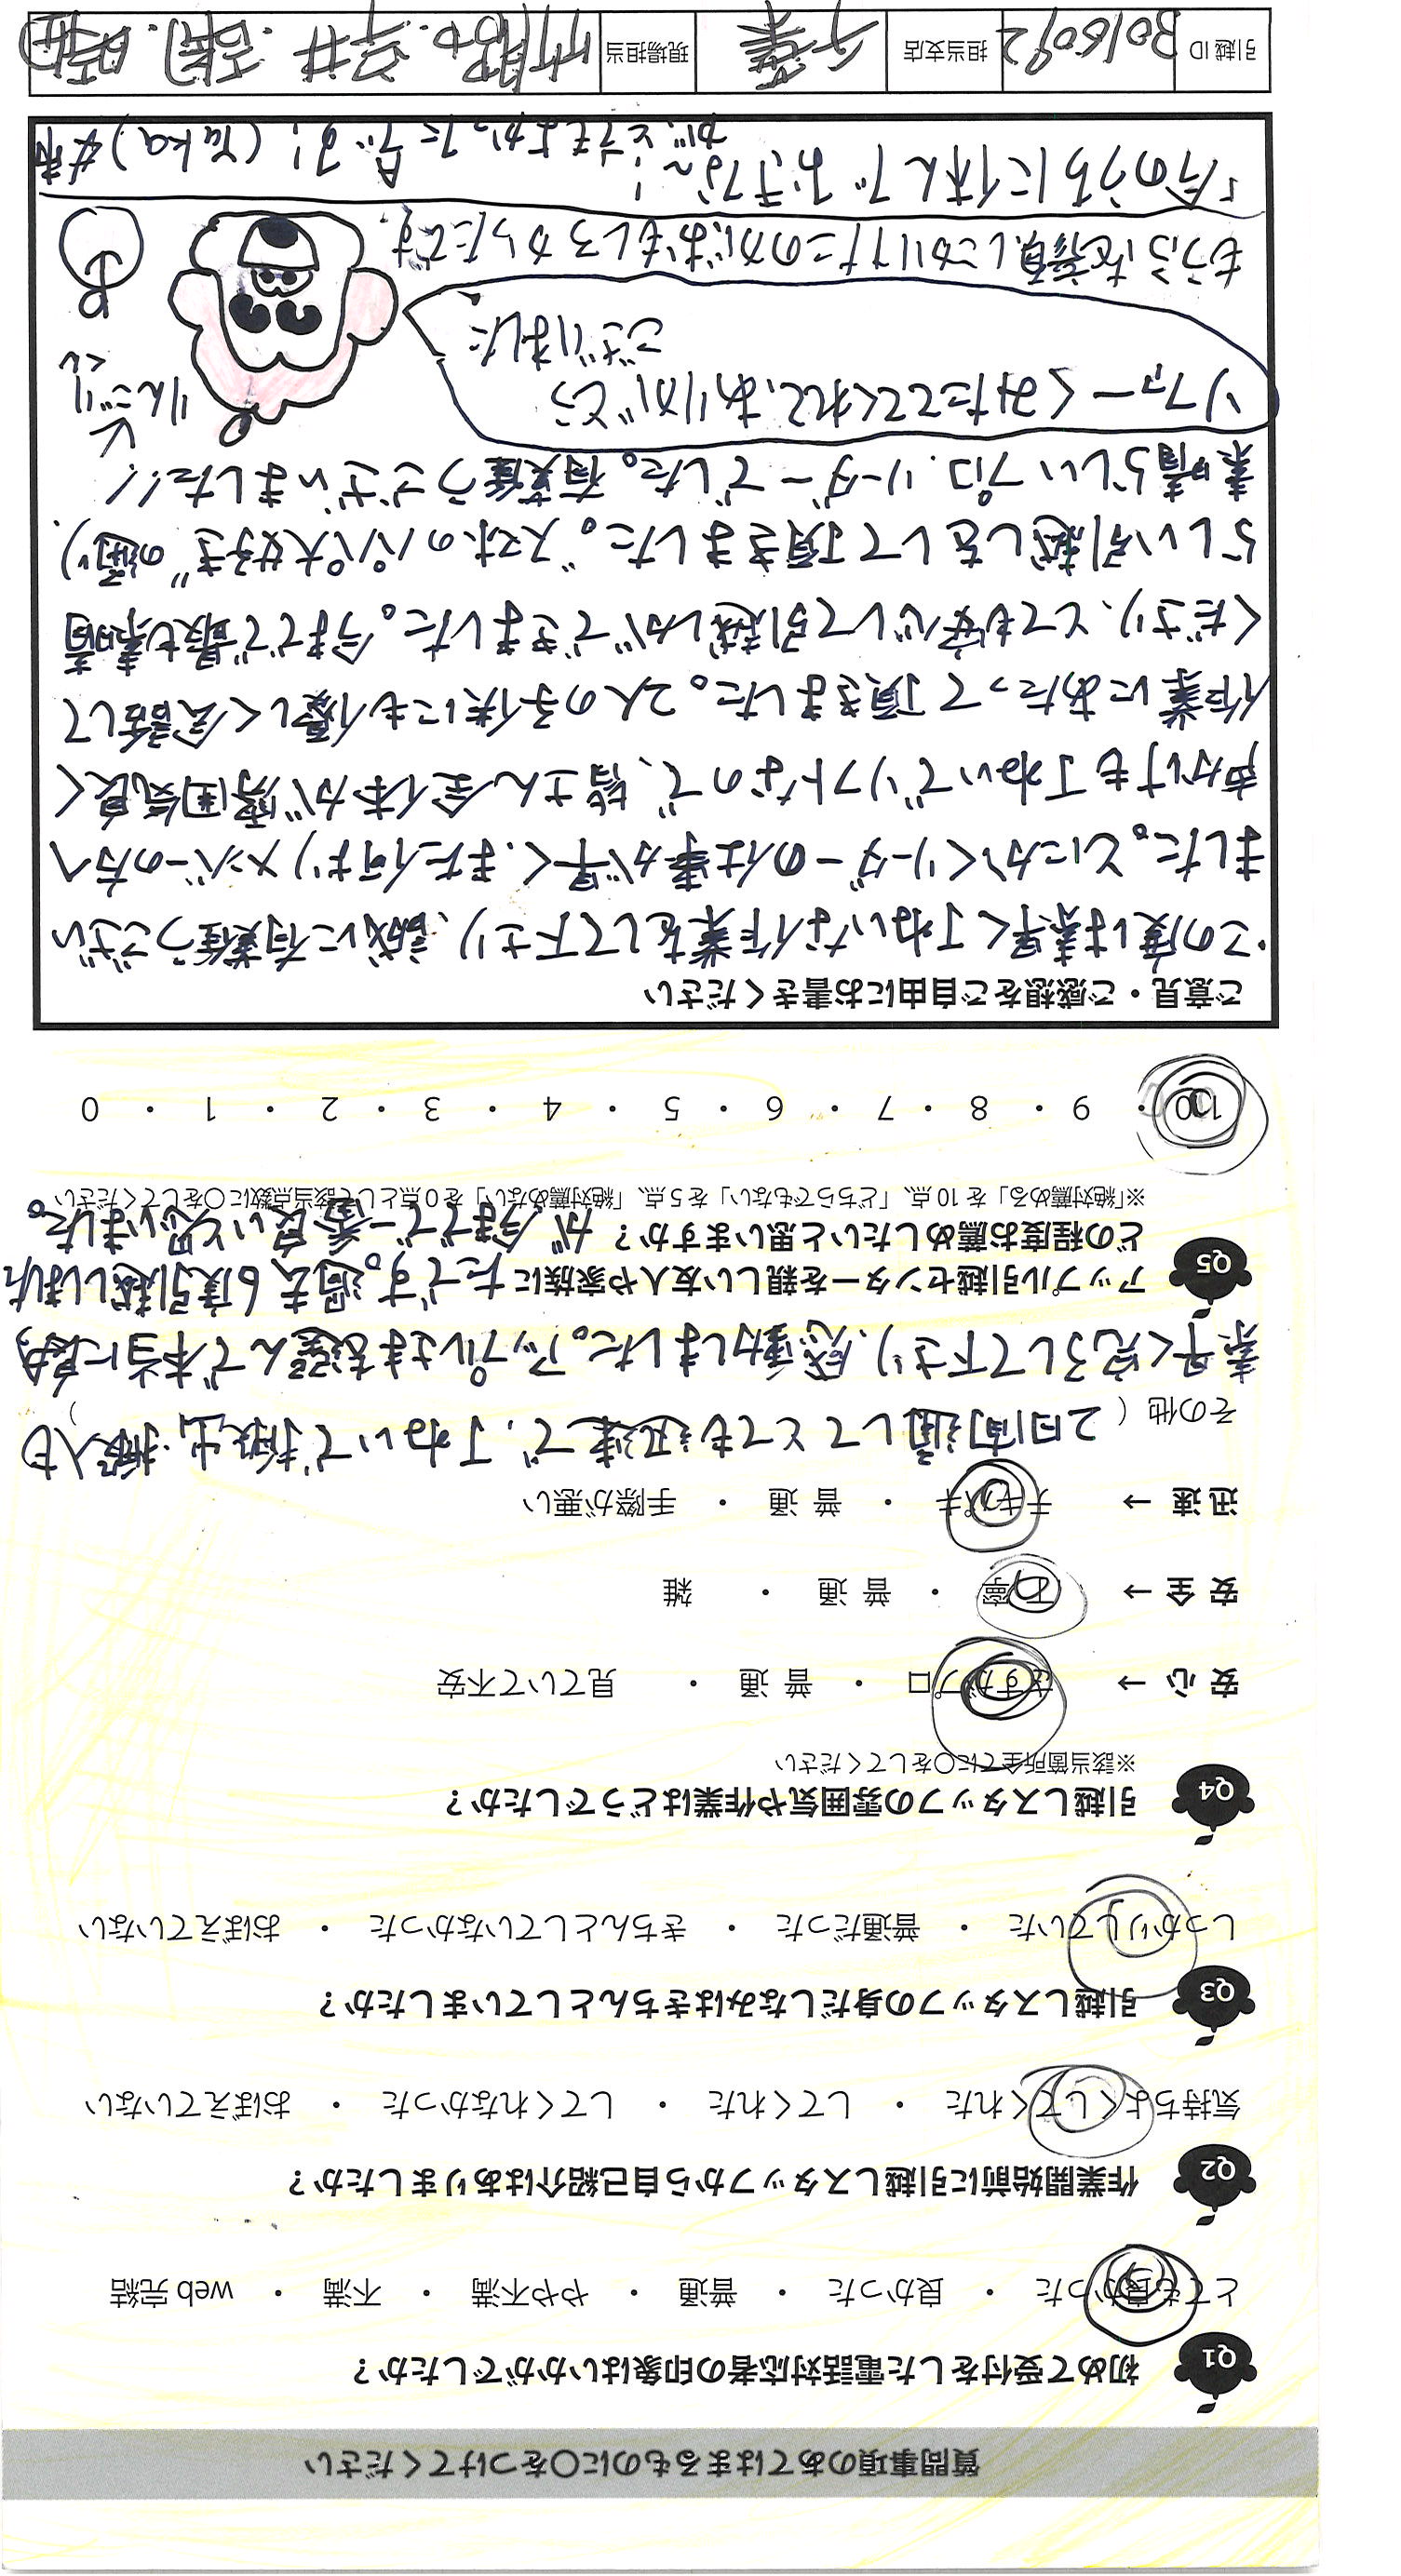 質問事項のあてはまるものに○をつけてください
Q1 初めて受付をした電話対応者の印象はいかがでしたか？
とても良かった ・ 良かった ・ 普通 ・ やや不満 ・ 不満 ・ web 完結
Q2 作業開始前に引越しスタッフから自己紹介はありましたか？
気持ちよくしてくれた ・ してくれた ・ してくれなかった ・ おぼえていない
Q3 引越しスタッフの身だしなみはきちんとしていましたか？
しっかりしていた ・ 普通だった ・ きちんとしていなかった ・ おぼえていない
Q4 引越しスタッフの雰囲気や作業はどうでしたか？
※該当箇所全てに○をしてください
安 心 → さすがプロ ・ 普 通 ・ 見ていて不安
安 全 → 丁寧 ・ 普 通 ・ 雑
迅 速 → テキパキ ・ 普 通 ・ 手際が悪い
その他（ 2日間通してとても迅速で、丁ねいで搬出、搬入も ）
素早く完了して下さり、感動しました。アップルさまを選んで本当に良かっ
たです。過去6度引越しました
が今までで一番良いと思いました。
Q5 アップル引越センターを親しい友人や家族に
どの程度お薦めしたいと思いますか？
※「絶対薦める」を 10 点、「どちらでもない」を 5 点、「絶対薦めない」を 0 点として該当点数に○をしてください
10 ・ 9 ・ 8 ・ 7 ・ 6 ・ 5 ・ 4 ・ 3 ・ 2 ・ 1 ・ 0
ご意見・ご感想をご自由にお書きください
・この度は素早く丁ねいな作業をして下さり、誠に有難うござい
ました。とにかくリーダーの仕事が早く、また何よりメンバーの方へ
声かけも丁ねいでソフトなので、皆さん全体が雰囲気良く
作業にあたって頂きました。2人の子供にも優しく会話して
くださり、とても安心して引越しができました。今までで最も素晴
らしい引越しをして頂きました。"スポのパパ大好き"の通り、
素晴らしいプロ、リーダーでした。有難うございました!!
ソファーくみたててくれて、ありがとう
ございました
りんごりくん
もうふを背負しこかりけたこのがおもしろからたです。
「今のうちに休んでおきな〜!
が、とてもよかったデス!